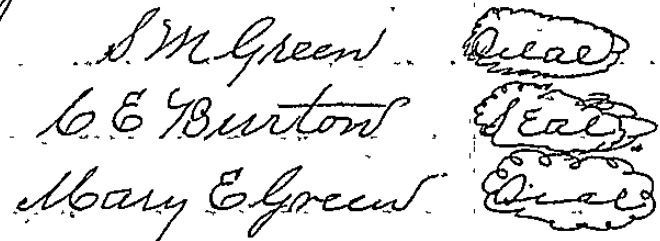 S M Green Seal
C E Burton Seal
Mary E Green Seal